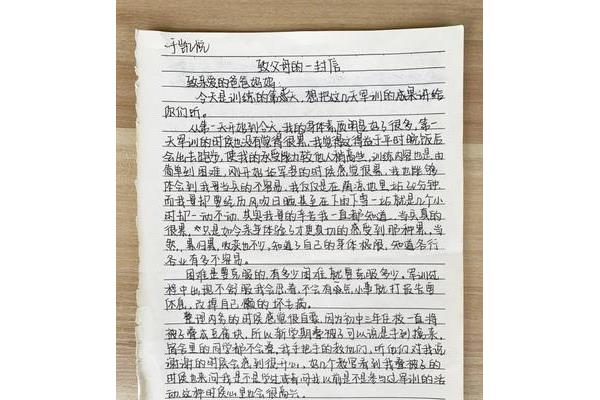 于凯悦
致父母的一封信
致亲爱的爸爸妈妈:
今天是训练的第天,想把这几天军训的成果讲给
你们听。
从第一天开始到今天,我的身体素质明显好了很多,第一
天军训的时候也没有觉得很累,我觉得这得益于平时晚饭后
会出去跑步,使我的承受能力较他人稍高些,训练内容也是由
简单到困难,刚开始站军姿的时候感觉很累,我也能够
体会到我哥当兵的不容易,我仅仅是在阴凉地里站20分钟
而我哥却要经历风吹日晒甚至在下雨下雪一站就是几个小
时却一动不动,其实我哥的辛苦我一直都知道,当兵真的
很累,只是如今亲身体验了才更真切的感受到那种累,当
然,累归累,收获也不少,知道了自己的身体极限,知道各行
各业有多不容易。
困难是要克服的,有多少困难就要克服多少,军训过
程中出现不舒服我会忍着,不会有点小事就打报告要
休息,改掉自己懒的坏毛病。
整理内务的时候感觉很自豪,因为初中三年在校一直将
被子叠成豆腐块,所以新学期叠被子可以说是手到擒来,
宿舍里的同学都不会叠,我手把手的教她们,听她们对我说
谢谢的时候会感到很开心,好几个教官看到我叠被子的
时候也来问我是不是学过或者问我以前是不是参与过军训的活
动,这种时候心里也会很高兴。